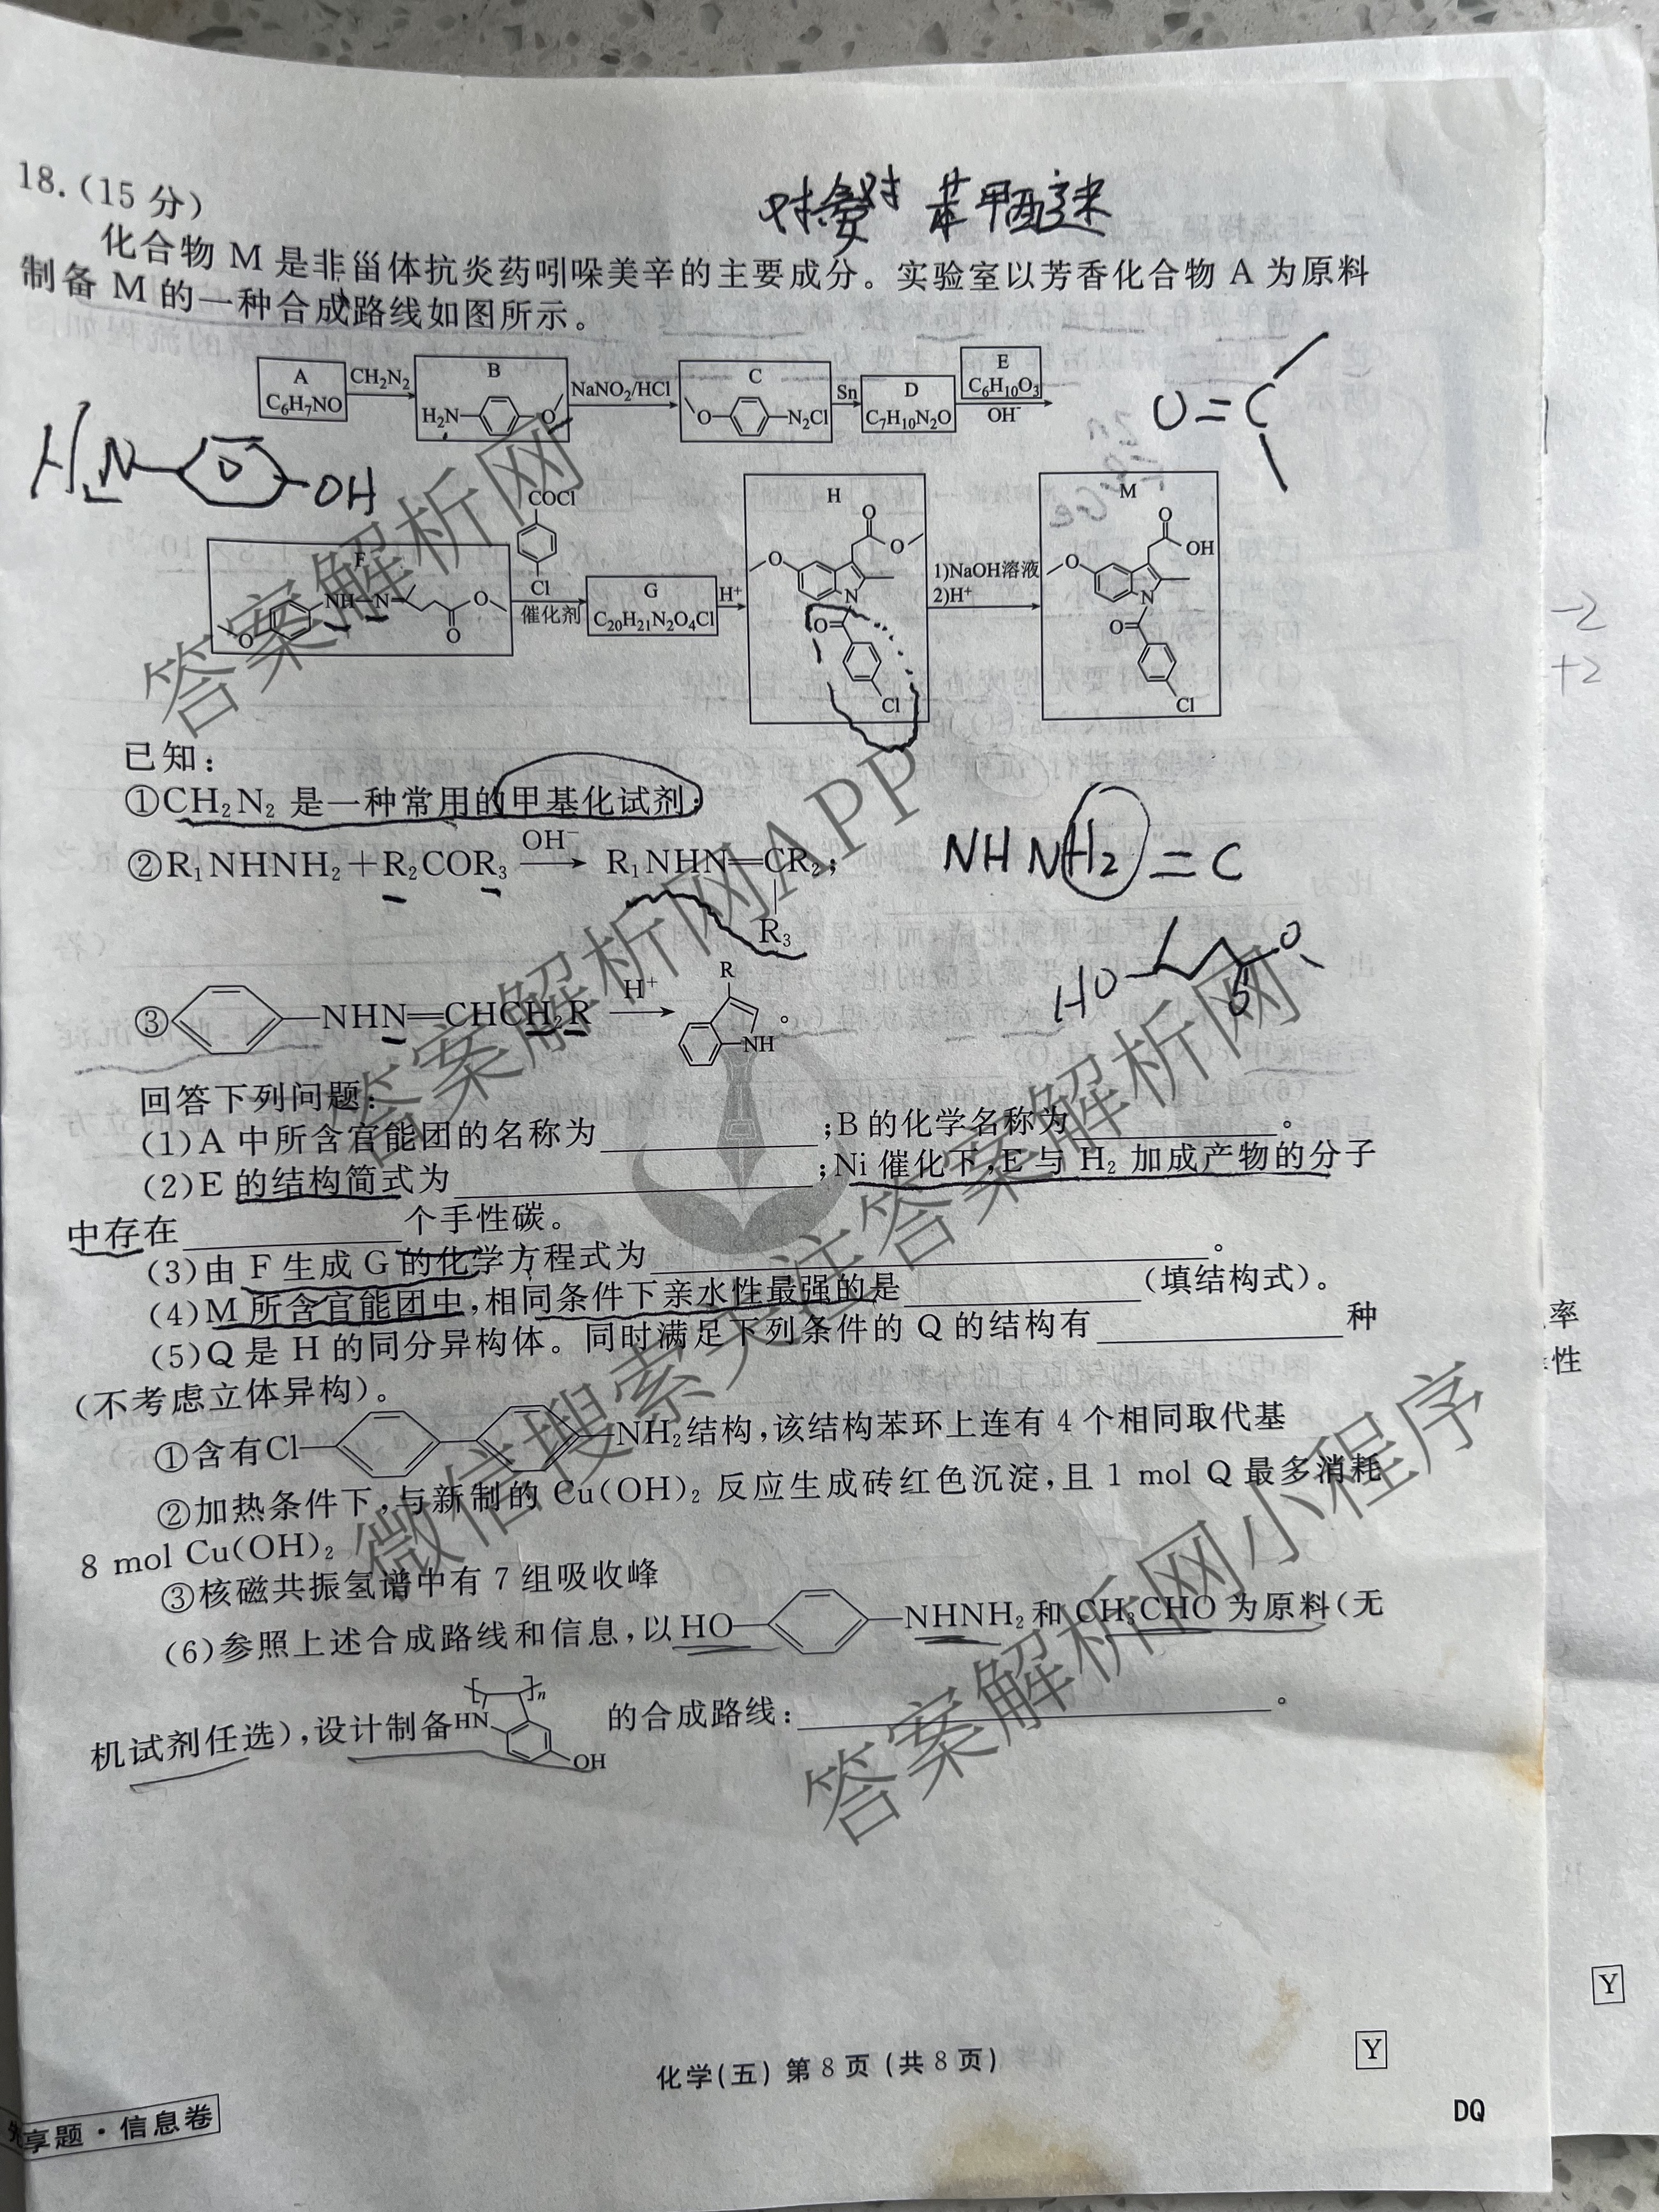 18.(15分)
对氨 苯甲醚
化合物 M 是非甾体抗炎药吲哚美辛的主要成分。实验室以芳香化合物 A 为原料
制备 M 的一种合成路线如图所示。
A
C₆H₇NO
CH₂N₂
B
H₂N
O
NaNO₂/HCl
C
O
N₂Cl
Sn
D
C₇H₁₀N₂O
E
C₆H₁₀O₃
OH⁻
O=C
H₂N
OH
COCl
Cl
催化剂
F
NH—N
O
O
O
G
C₂₀H₂₁N₂O₄Cl
H⁺
H
O
O
O
N
O
Cl
1)NaOH溶液
2)H⁺
M
O
OH
O
N
O
Cl
-2
+2
已知:
①CH₂N₂ 是一种常用的甲基化试剂;
②R₁NHNH₂+R₂COR₃ OH⁻ R₁NHN=CR₂;
R₃
NHNH₂=C
HO
O
③ —NHN=CHCH₂R H⁺ R NH 。
回答下列问题:
(1)A 中所含官能团的名称为 ;B 的化学名称为 。
(2)E 的结构简式为 ;Ni 催化下,E 与 H₂ 加成产物的分子
中存在 个手性碳。
(3)由 F 生成 G 的化学方程式为 。
(4)M 所含官能团中,相同条件下亲水性最强的是 (填结构式)。
(5)Q 是 H 的同分异构体。同时满足下列条件的 Q 的结构有 种
(不考虑立体异构)。
①含有Cl— —NH₂结构,该结构苯环上连有 4 个相同取代基
②加热条件下,与新制的 Cu(OH)₂ 反应生成砖红色沉淀,且 1 mol Q 最多消耗
8 mol Cu(OH)₂
③核磁共振氢谱中有 7 组吸收峰
(6)参照上述合成路线和信息,以HO— —NHNH₂和 CH₃CHO 为原料(无
机试剂任选),设计制备 [ ]n HN OH 的合成路线: 。
率
性
化学(五) 第 8 页 (共 8 页)
Y
Y
DQ
享题·信息卷
答案解析网
答案解析网APP
微信搜索关注答案解析网
答案解析网小程序